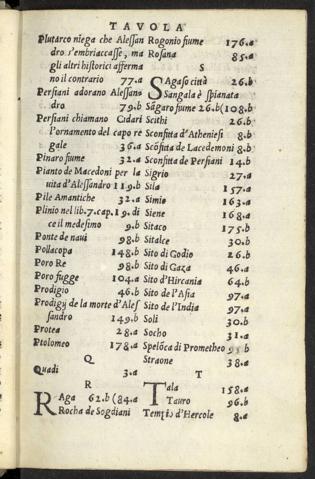 TAVOLA
Plutarco niega che Alessan
dro s'embriaccasse, ma
gli altri historici afferma
no il contrario 77.a
Persiani adorano Alessano
dro 79.b
Persiani chiamano Cidari
l'ornamento del capo re
gale 36.a
Pinaro fiume 32.a
Pianto de Macedoni per la
uita d'Alessandro 119.b
Pile Amantiche 32.a
Plinio nel lib.7.cap.19. di
ce il medesimo 9.b
Ponte de naui 98.b
Pollacopa 148.b
Poro Re 98.b
Poro fugge 104.a
Prodigio 46.b
Prodigij de la morte d'Ales
sandro 149.b
Protea 28.a
Ptolomeo 178.a
Q
Quadi 3.a
R
RAga 62.b (84.a
Rocha de Sogdiani
Rogonio fiume 176.a
Rosana 85.a
S
SAgaso città 26.b
Sangala è spianata
Sagaro fiume 26.b(108.b
Scithi 26.b
Sconfitta d'Atheniesi 8.b
Scōfitta de Lacedemoni 8.b
Sconfitta de Persiani 14.b
Sigrio 27.a
Sila 157.a
Simia 163.a
Siene 168.a
Sitaco 175.b
Sitalce 30.b
Sito di Godio 26.b
Sito di Gaza 46.a
Sito d'Hircania 64.b
Sito de l'Asia 97.a
Sito de l'India 97.a
Soli 30.b
Socho 31.a
Spelōca di Prometheo
Straone 38.a
T
TAla 158.a
Tauro 96.b
Tempio d'Hercole 8.a